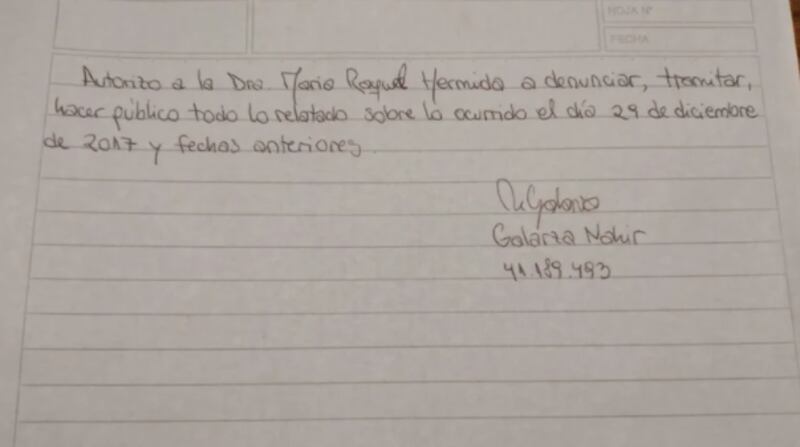 HOJA Nº
FECHA
Autorizo a la Dra. Maria Raquel Hermida a denunciar, tramitar,
hacer público todo lo relatado sobre lo ocurrido el día 29 de diciembre
de 2017 y fechas anteriores.
NGalarza
Galarza Nahir
41.189.493